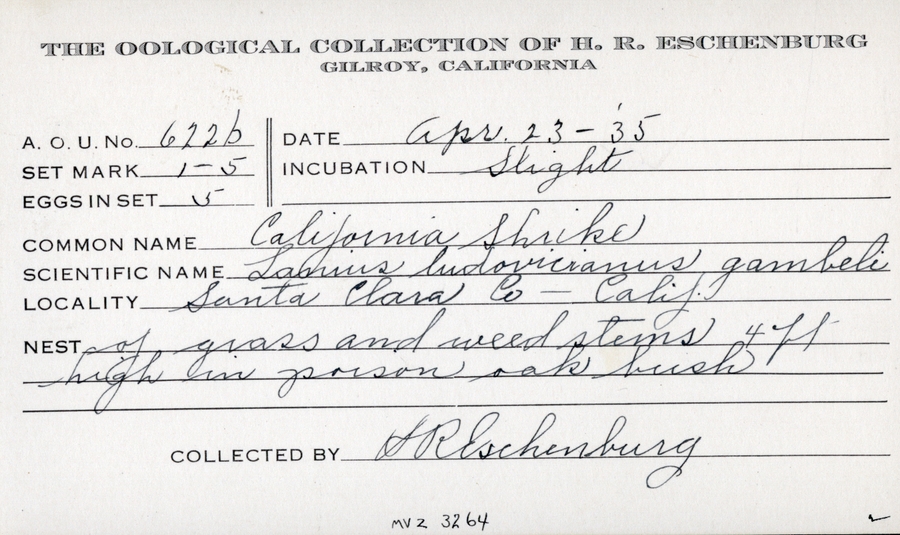 THE OOLOGICAL COLLECTION OF H. R. ESCHENBURG
GILROY, CALIFORNIA
A. O. U. No. 622b
SET MARK 1-5
EGGS IN SET 5
DATE Apr. 23-'35
INCUBATION Slight
COMMON NAME California Shrike
SCIENTIFIC NAME Lanius ludovicianus gambeli
LOCALITY Santa Clara Co — Calif.
NEST of grass and weed stems 4 ft
high in poison oak bush
COLLECTED BY HREschenburg
MVZ 3264